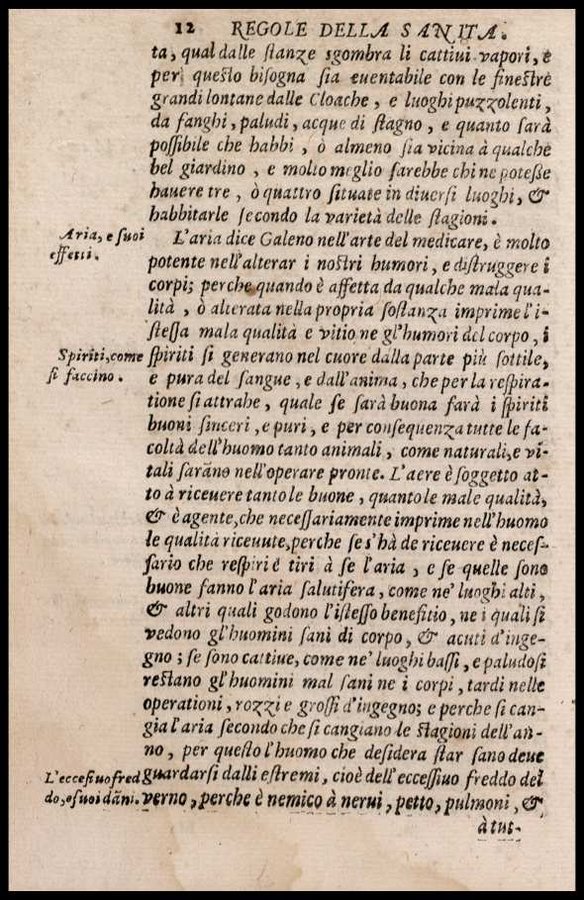 12 REGOLE DELLA SANITA.
ta, qual dalle ſtanze sgombra li cattiui vapori, e
per queſto biſogna ſia euentabile con le fineſtre
grandi lontane dalle Cloache, e luoghi puzzolenti,
da fanghi, paludi, acque di ſtagno, e quanto ſarà
poſſibile che habbi, ò almeno ſia vicina à qualche
bel giardino, e molto meglio farebbe chi ne poteſſe
hauere tre, ò quattro ſituate in diuerſi luoghi, &
habbitarle ſecondo la varietà delle ſtagioni.
Aria, e ſuoi
effetti.
L'aria dice Galeno nell'arte del medicare, è molto
potente nell'alterar i noſtri humori, e diſtruggere i
corpi; perche quando è affetta da qualche mala qua-
lità, ò alterata nella propria ſoſtanza imprime l'i-
ſteſſa mala qualità e vitio ne gl'humori del corpo, i
Spiriti, come
ſi faccino.
ſpiriti ſi generano nel cuore dalla parte più ſottile,
e pura del ſangue, e dall'anima, che per la reſpira-
tione ſi attrahe, quale ſe ſarà buona farà i ſpiriti
buoni ſinceri, e puri, e per conſequenza tutte le fa-
coltà dell'huomo tanto animali, come naturali, e vi-
tali ſarãno nell'operare pronte. L'aere è ſoggetto at-
to à riceuere tanto le buone, quanto le male qualità,
& è agente, che neceſſariamente imprime nell'huomo
le qualità riceuute, perche ſe s'hà de riceuere è neceſ-
ſario che reſpiri è tiri à ſe l'aria, e ſe quelle ſono
buone fanno l'aria ſalutifera, come ne' luoghi alti,
& altri quali godono l'iſteſſo benefitio, ne i quali ſi
vedono gl'huomini ſani di corpo, & acuti d'inge-
gno; ſe ſono cattiue, come ne' luoghi baſſi, e paludoſi
reſtano gl'huomini mal ſani ne i corpi, tardi nelle
operationi, rozzi e groſſi d'ingegno; e perche ſi can-
gia l'aria ſecondo che ſi cangiano le ſtagioni dell'an-
no, per queſto l'huomo che deſidera ſtar ſano deue
L'ecceſiuo fred
do, e ſuoi dãni.
guardarſi dalli eſtremi, cioè dell'ecceſſiuo freddo del
verno, perche è nemico à nerui, petto, pulmoni, &
à tut-